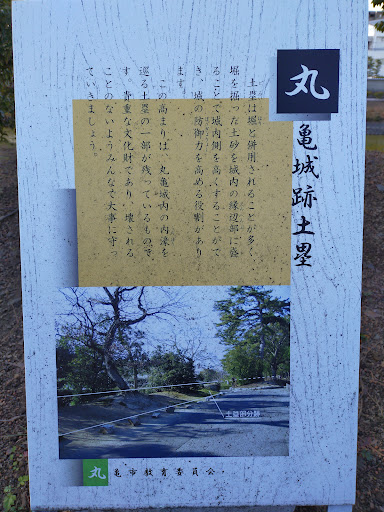 丸亀城跡土塁
土塁は堀と併用されることが多く、
堀を掘った土砂を城内の縁辺部に盛
ることで城内側を高くすることがで
き、城の防御力を高める役割があり
ます。
この高まりは、丸亀城内の内濠を
巡る土塁の一部が残っているもので
す。貴重な文化財であり、壊される
ことのないようみんなで大事に守っ
ていきましょう。
土塁部分跡
丸亀市教育委員会